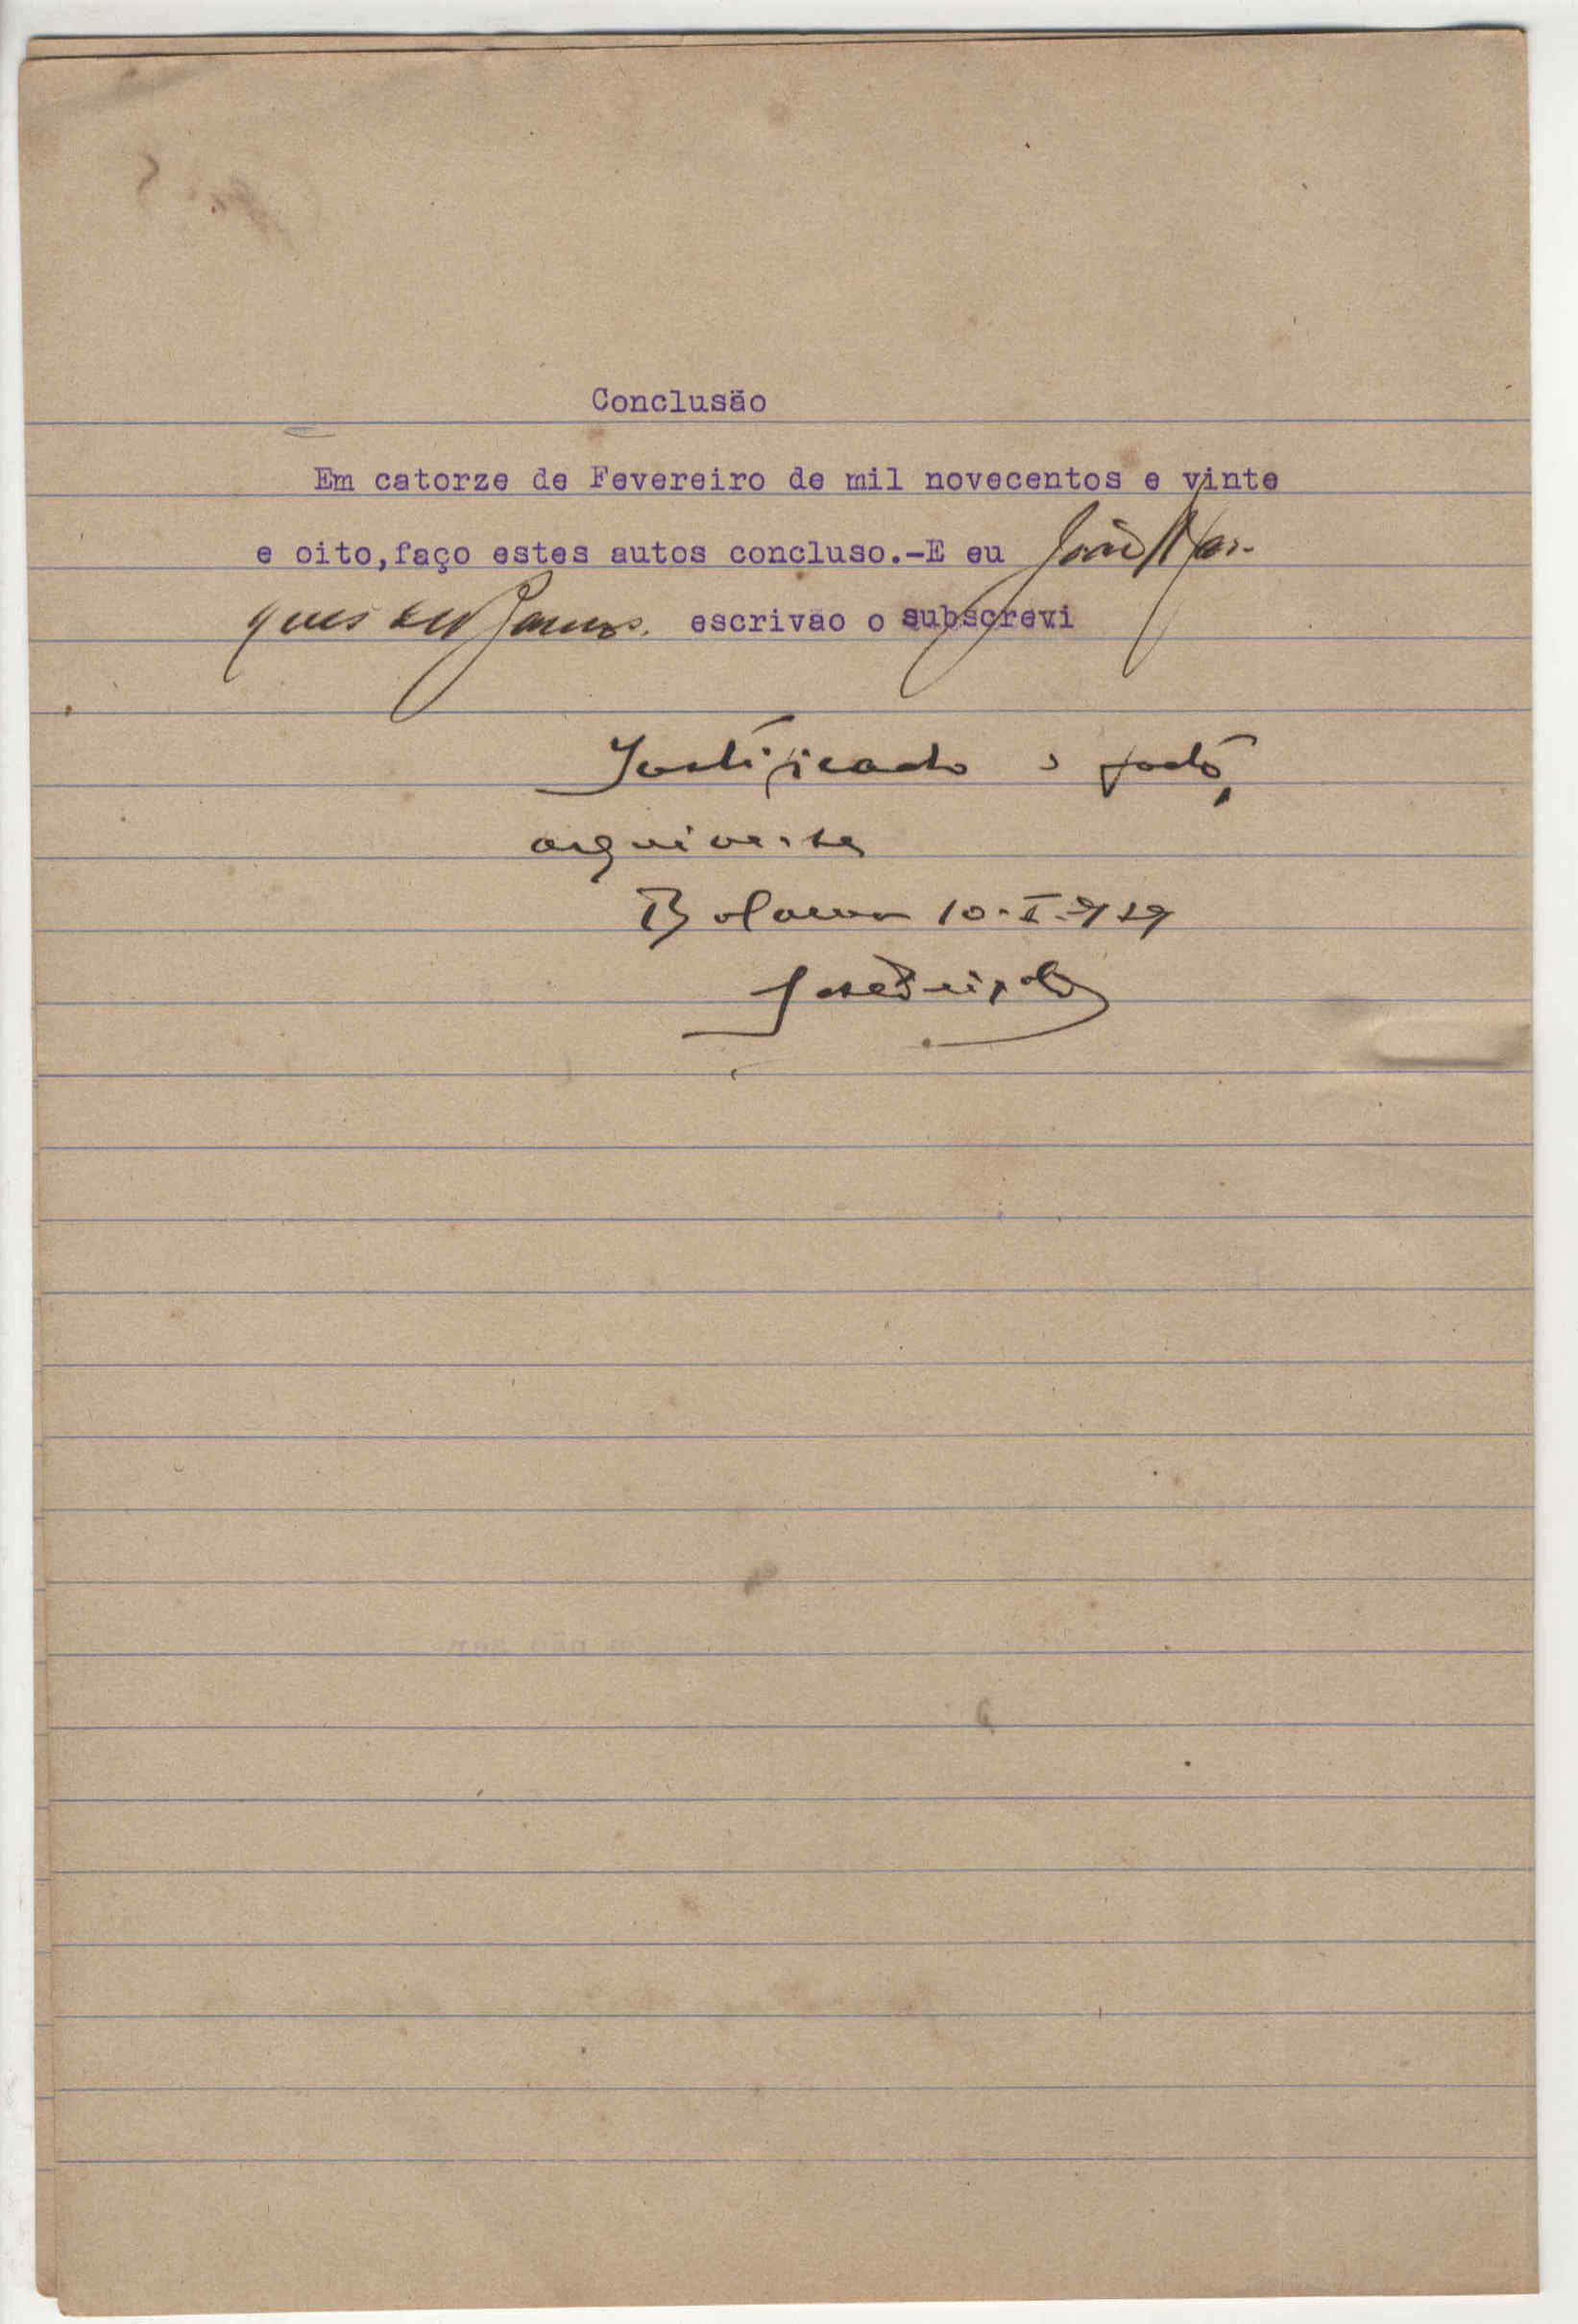 Conclusão
Em catorze de Fevereiro de mil novecentos e vinte
e oito,faço estes autos concluso.-E eu João Mar-
ques de Barros. escrivão o subscrevi
Justificado o facto,
arquive-se
Bolama 10-I-929
José Peixoto